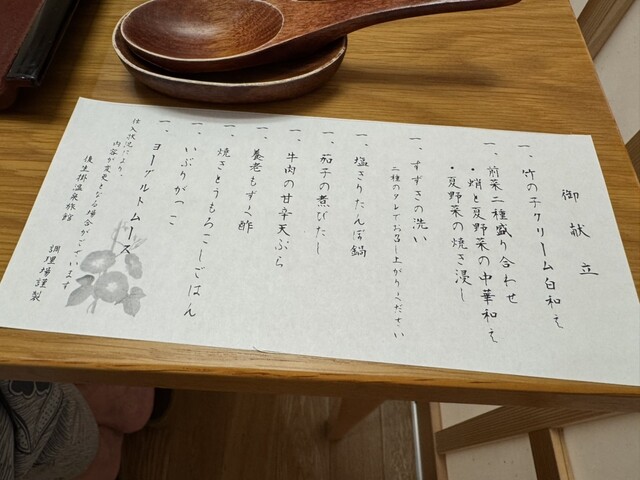 御献立
一、竹の子クリーム白和え
一、前菜二種盛り合わせ
・蛸と夏野菜の中華和え
・夏野菜の焼き浸し
一、すずきの洗い
二種のタレでお召し上がりください
一、塩きりたんぽ鍋
一、茄子の煮びたし
一、牛肉の甘辛天ぷら
一、養老もずく酢
一、焼きとうもろこしごはん
一、いぶりがっこ
一、ヨーグルトムース
仕入状況により、
内容が変更となる場合がございます
後生掛温泉旅館 調理場謹製